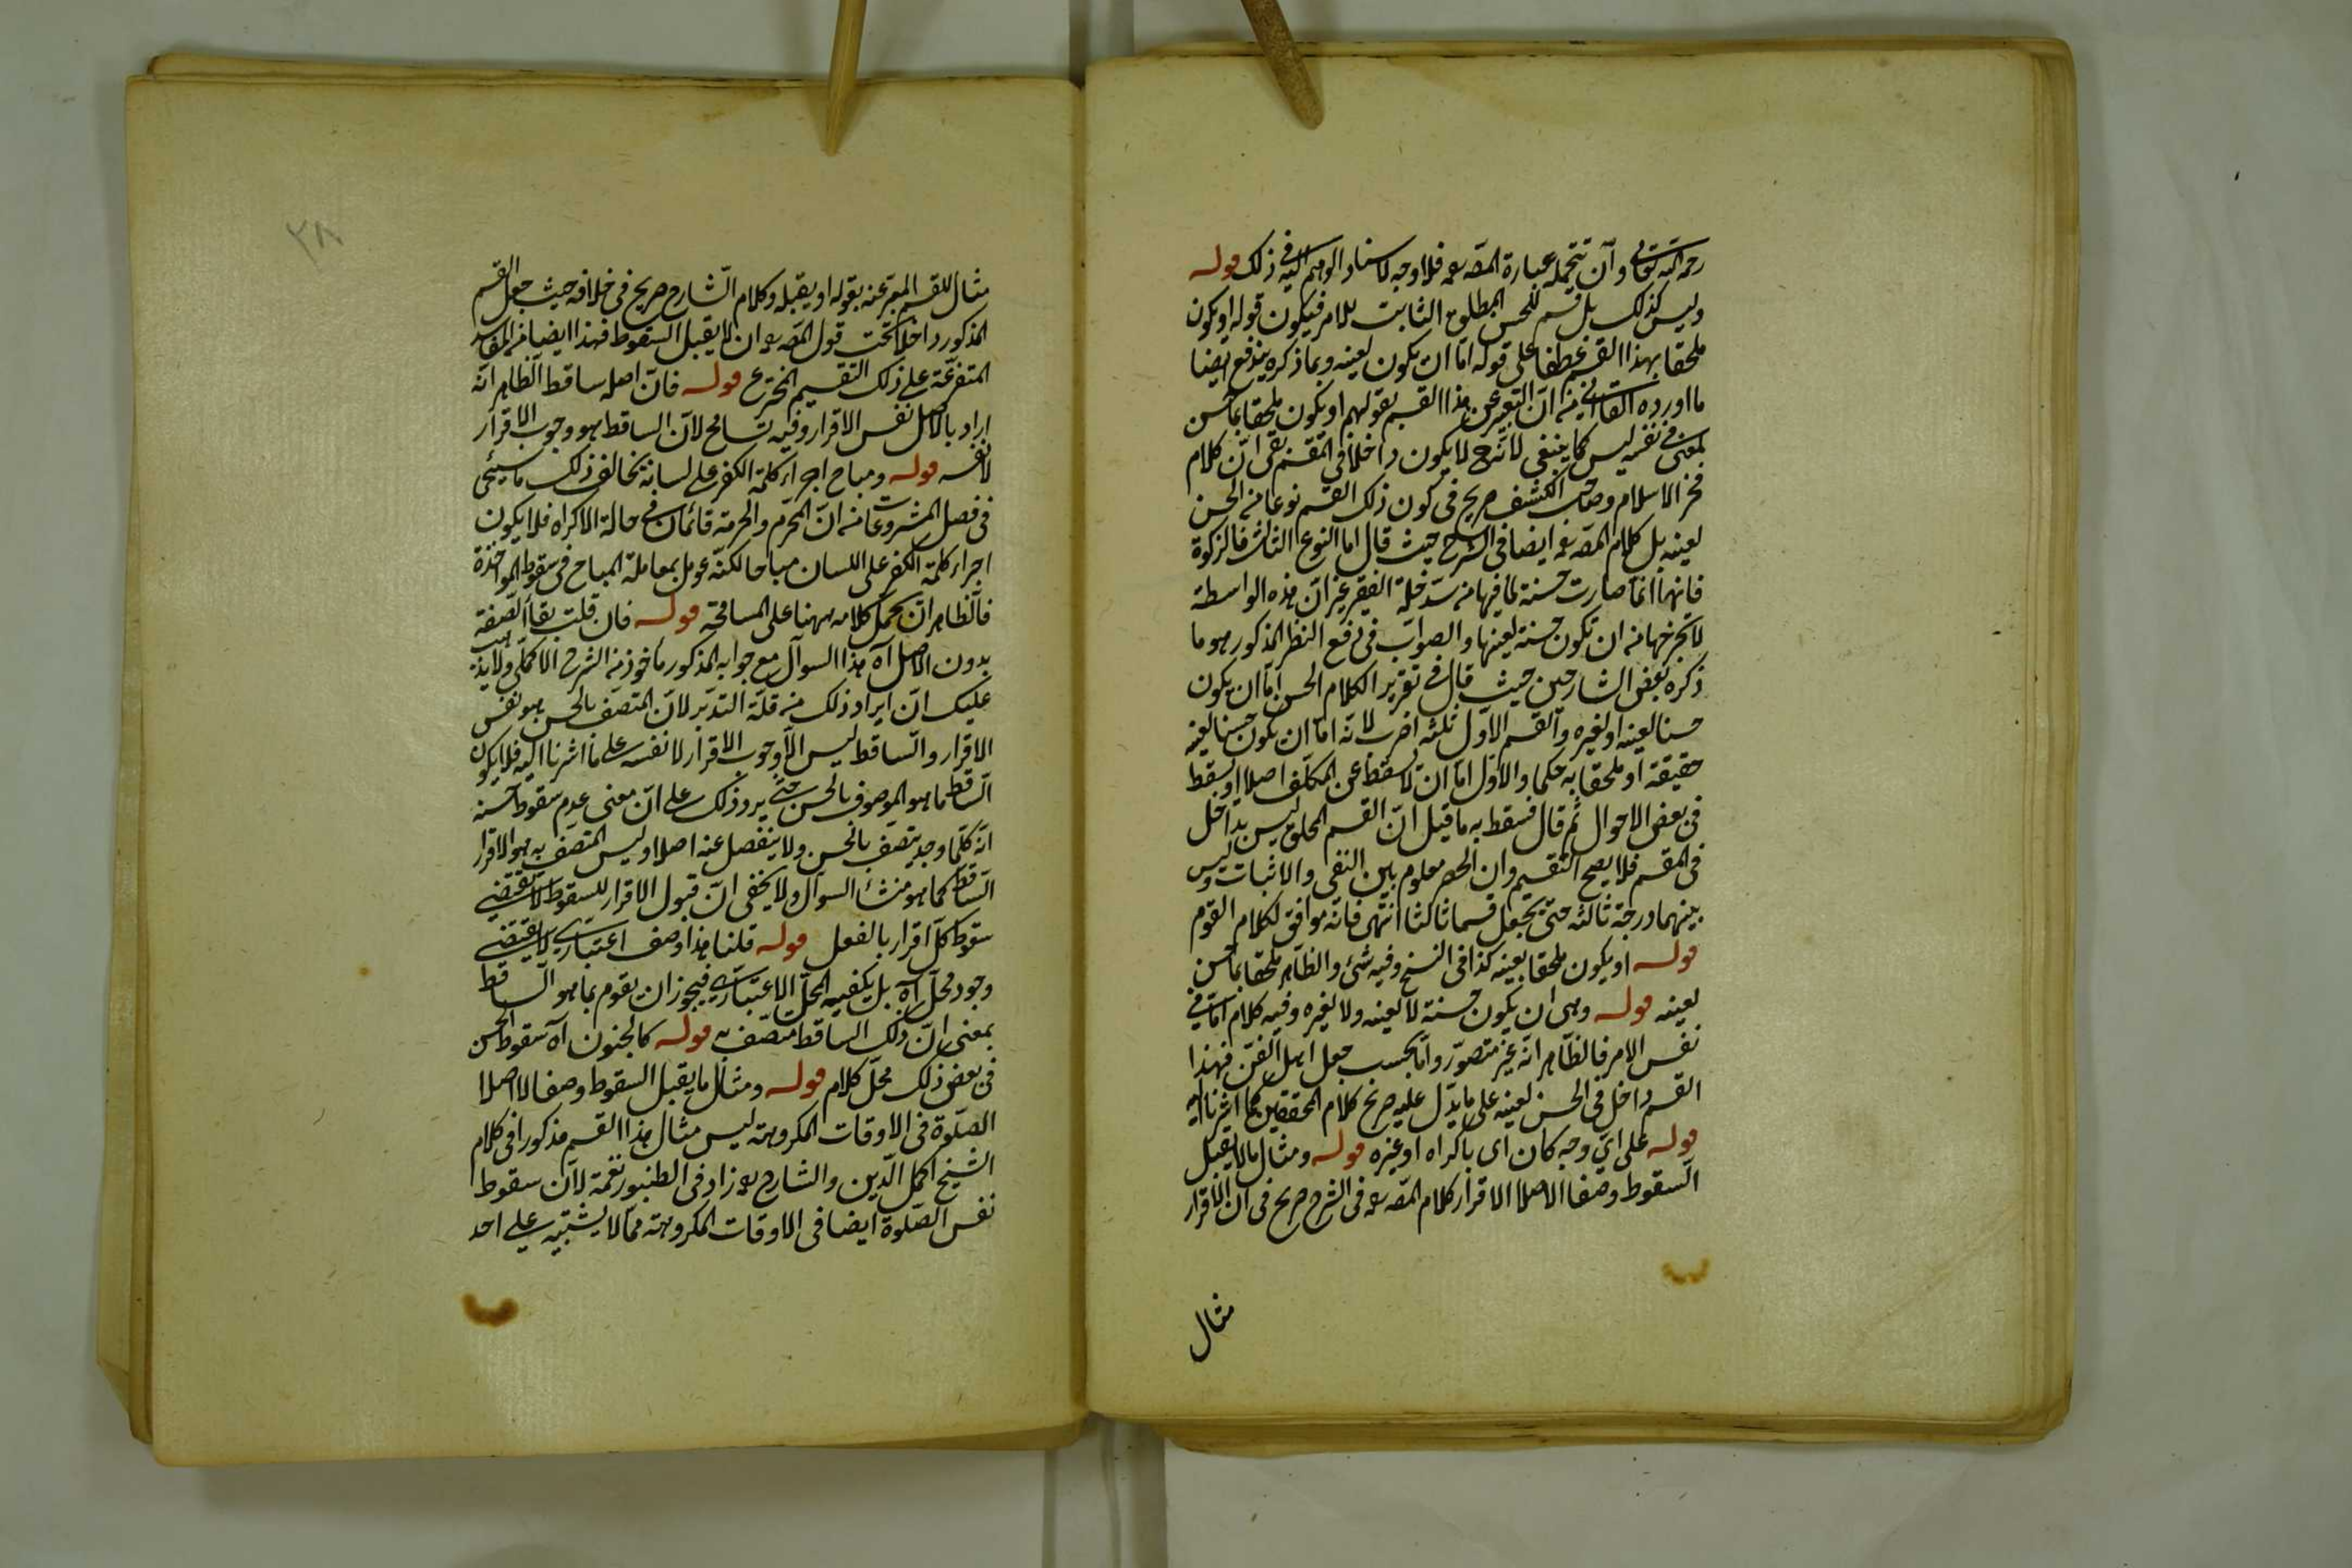 رحمه الله تعالى وان تتحمله عبارة المصـ رحمه فلا وجه لاسناد الوهم اليه في ذلك قوله
وليس كذلك بل قسم للحسن المطلق الثابت للامر فيكون قوله او يكون
ملحقا بهذا القسم عطفا على قوله اما ان يكون لعينه وبما ذكره يندفع ايضا
ما اورده القاآني من ان التعبير عن هذا القسم بقولهم او يكون ملحقا بما حسن
لمعنى في نفسه ليس كما ينبغي لانه ح لا يكون داخلا في المقسم بقى ان كلام
فخر الاسلام وصاحب الكشف صريح في كون ذلك القسم نوعا من الحسن
لعينه بل كلام المصـ رحمه ايضا في الشرح حيث قال اما النوع الثالث فالزكوة
فانها انما صارت حسنة لما فيها من سد خلة الفقير غير ان هذه الواسطة
لا تخرجها من ان تكون حسنة لعينها والصواب في دفع النظر المذكور هو ما
ذكره بعض الشارحين حيث قال في تقرير الكلام الحسن اما ان يكون
حسنا لعينه او لغيره والقسم الاول ثلثة اضرب لانه اما ان يكون حسنا لعينه
حقيقة او ملحقا به حكما والاول اما ان لا يسقط عن المكلف اصلا او يسقط
في بعض الاحوال ثم قال فسقط به ما قيل ان القسم الملحق ليس بداخل
في المقسم فلا يصح التقسيم وان الحصر معلوم بين النفى والاثبات وليس
بينهما درجة ثالثة حتى يجعل قسما ثالثا انتهى فانه موافق لكلام القوم
قوله او يكون ملحقا بعينه كذا في النسخ وفيه شئ والظاهر ملحقا بما حسن
لعينه قوله وهى ان يكون حسنة لا لعينه ولا لغيره وفيه كلام اما في
نفس الامر فالظاهر انه غير متصور واما بحسب جعل اهل الفن فهذا
القسم داخل في الحسن لعينه على ما يدل عليه صريح كلام المحققين كما اشرنا اليه
قوله على اي وجه كان اى باكراه او غيره قوله ومثال ما لا يقبل
السقوط وصفا لا اصلا الاقرار كلام المصـ رحمه في الشرح صريح في ان الاقرار
مثال
٢٨
مثال للقسم المعبر عنه بقوله او يقبله وكلام الشارح صريح في خلافه حيث جعل القسم
المذكور داخلا تحت قول المصـ رحمه ان لا يقبل السقوط فهذا ايضا من المفاسد
المتفرعة على ذلك التقسيم المخترع قوله فان اصله ساقط الظاهر انه
اراد بالاصل نفس الاقرار وفيه تسامح لان الساقط هو وجوب الاقرار
لا نفسه قوله ومباح اجراء كلمة الكفر على لسانه يخالف ذلك ما سيجئ
في فصل المشروعات من ان المحرم والحرمة قائمان في حالة الاكراه فلا يكون
اجراء كلمة الكفر على اللسان مباحا لكنه عومل بمعاملة المباح في سقوط المواخذة
فالظاهر ان يحمل كلامه ههنا على المسامحة قوله فان قلت بقاء الصفة
بدون الاصل آه هذا السوآل مع جوابه المذكور ماخوذ من الشرح الاكملى ولا يذهب
عليك ان ايراد ذلك من قلة التدبر لان المتصف بالحسن هو نفس
الاقرار والساقط ليس الا وجوب الاقرار لا نفسه على ما اشرنا اليه فلا يكون
الساقط ما هو الموصوف بالحسن حتى يرد ذلك على ان معنى عدم سقوط حسنه
انه كلما وجد يتصف بالحسن ولا ينفصل عنه اصلا وليس المتصف به هو الاقرار
الساقط كما هو منشأ السوآل ولا يخفى ان قبول الاقرار للسقوط لا يقتضى
سقوط كل اقرار بالفعل قوله قلنا هذا وصف اعتبارى لا يقتضى
وجود محل آه بل يكفيه المحل الاعتبارى فيجوز ان يقوم بما هو الساقط
بمعنى ان ذلك الساقط متصف به قوله كالجنون آه سقوط الحسن
في بعض ذلك محل كلام قوله ومثال ما يقبل السقوط وصفا لا اصلا
الصلوة في الاوقات المكروهة ليس مثال هذا القسم مذكورا في كلام
الشيخ اكمل الدين والشارح رحمه زاد في الطنبور نغمة لان سقوط
نفس الصلوة ايضا في الاوقات المكروهة مما لا يشتبه على احد